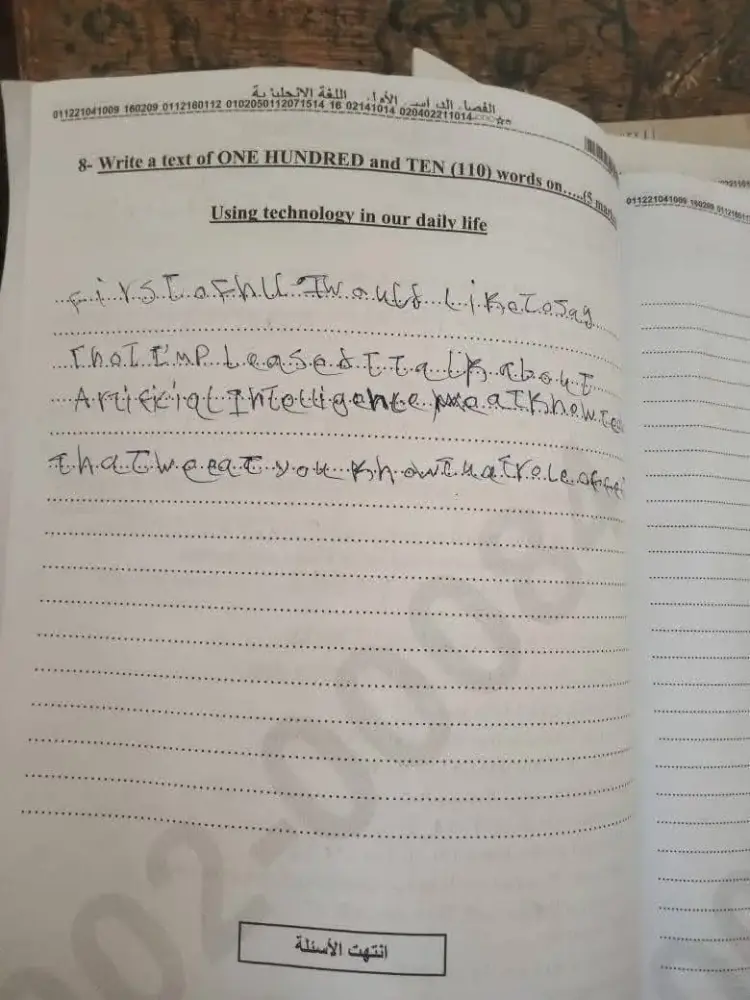 الفصل الدراسي الأول اللغة الانجليزية
011221041009 160209 0112160112 0102050112071514 16 02141014 020402211014
8- Write a text of ONE HUNDRED and TEN (110) words on.....(5 mar
Using technology in our daily life
First of hll I would Like To say
That I'm pleased t talk about
Artificial Intelligence
that we eat you know that role of
انتهت الأسئلة
011221041009 160209